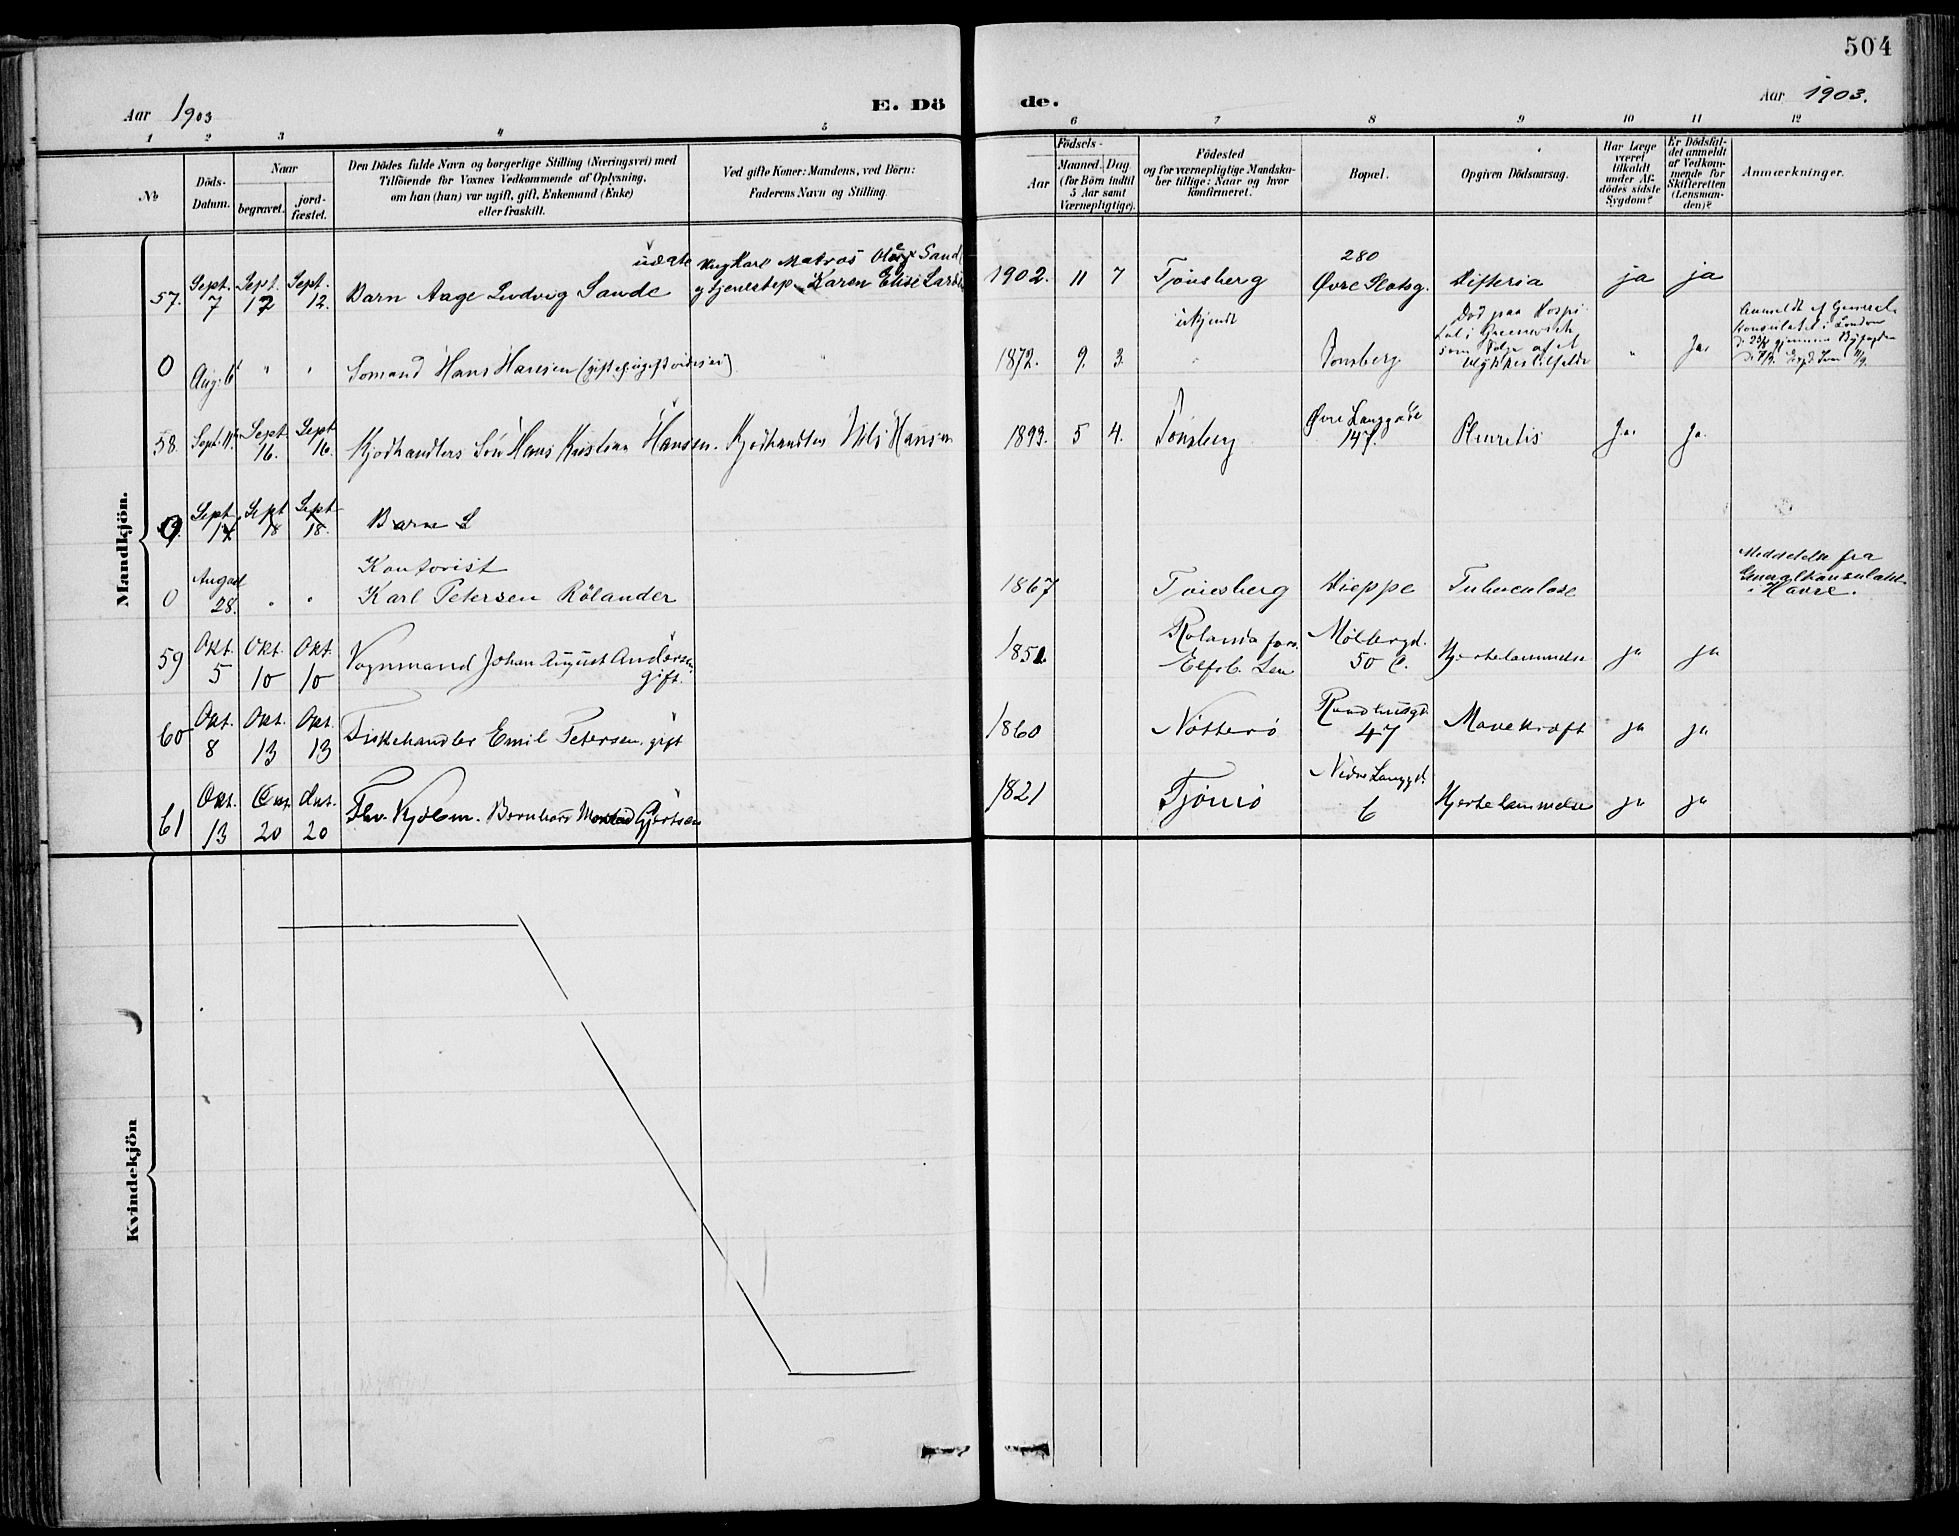 504
Aar 1903 E. Dö
de. Aar 1903.
1 2 3 4 5
6 7 8 9 10 11 12
No
Döds-Datum.
Naar
begravet.
jord-fæstet.
Den Dödes fulde Navn og borgerlige Stilling (Næringsvei) med
Tilföiende for Voxnes Vedkommende af Oplysning,
om han (hun) var ugift, gift, Enkemand (Enke)
eller fraskilt.
Ved gifte Koner: Mandens, ved Börn:
Faderens Navn og Stilling.
Födsels-
Aar
Maaned. Dag
(for Börn indtil
5 Aar samt
Værnepligtige).
Födested
og for værnepligtige Mandska-
ber tillige: Naar og hvor
konfirmeret.
Bopæl.
Opgiven Dödsaarsag.
Har Læge
været
tilkaldt
under Af-
dödes sidste
Sygdom?
Er Dödsfal-
det anmeldt
af Vedkom-
mende for
Skifteretten
(Lensman-
den)?
Anmærkninger.
Mandkjön.
57. Sept. 7 Sept. 12 Sept. 12. Barn Aage Ludvig Sande
Ungkarl Matros Sand
Karen Elise
1902. 11 7 Tönsberg 280 Øvre Difteria ja ja
0 Aug. 6 " " Sömand Hans Hansen
1872. 9. 3. ukjendt Tonsberg
Död paa Hospi-
tal i Greenwich
som Følge af et
Ulykkestilfælde
" Ja.
Anmeldt af General-
konsulatet i London
58. Sept. Sept. 16. Sept. 16. Kjödhandlers Sön Hans Kristian Hansen. Kjödhandler Nils Hansen
1893. 5 4. Tönsberg Øvre Langgade 147. Pleuritis Ja. Ja.
Sept. Sept. 18 Sept. 18. Barn
0 August 28. " " Kontorist
Karl Petersen Rölander
1867 Tönsberg Dieppe Tuberculose
Meddelelse fra
Generalkonsulatet
i Havre.
59 Okt. 5 Okt. 10 Okt. 10 Vognmand Johan August Andersen
gift.
1851. Rolanda fors.
Elfsb. Len
50 C. Hjertelammelse ja ja
60 Okt. 8 Okt. 13 Okt. 13 Fiskehandler Emil Petersen. gift
1860 Nötterö 47 Mavekræft ja ja
61 Okt. 13 Okt. 20 Okt. 20 Bernhard Gjertsen
1821 Tjömö Nedre Langgd. 6 Hjertelammelse ja ja
Kvindekjön